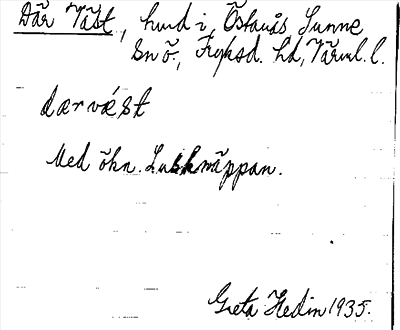 Där Väst, hmd i Östanås Sunne
sn ö., Fryksd. hd, Värml. l.
dærvǽst
Med ökn. Lusknäppan.
Greta Hedin 1935.